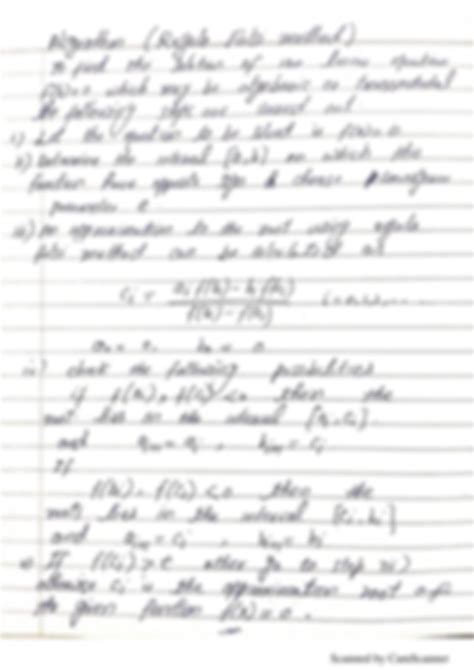 Algorithm (Regula Falsi method)
To find the solution of non linear equation
f(x)=0 which may be algebraic or transcendental
the following steps are carried out
i) Let the equation to be solved is f(x)=0
ii) Determine the interval [a,b] on which the
function have opposite sign & choose
parameter ε
iii) An approximation to the root using regula
falsi method can be calculated as
c_i = (a_i f(b_i) - b_i f(a_i)) / (f(b_i) - f(a_i))   i = 0,1,2, ....
iv) check the following possibilities
if f(a_i) . f(c_i) < 0 then the
root lies in the interval [a_i, c_i]
and a_{i+1} = a_i , b_{i+1} = c_i
If
f(b_i) . f(c_i) < 0 then the
roots lies in the interval [c_i, b_i]
and a_{i+1} = c_i , b_{i+1} = b_i
v) If f(c_i) > ε go to step iii)
otherwise c_i is the approximation root of
the given function f(x) = 0 .
Scanned by CamScanner